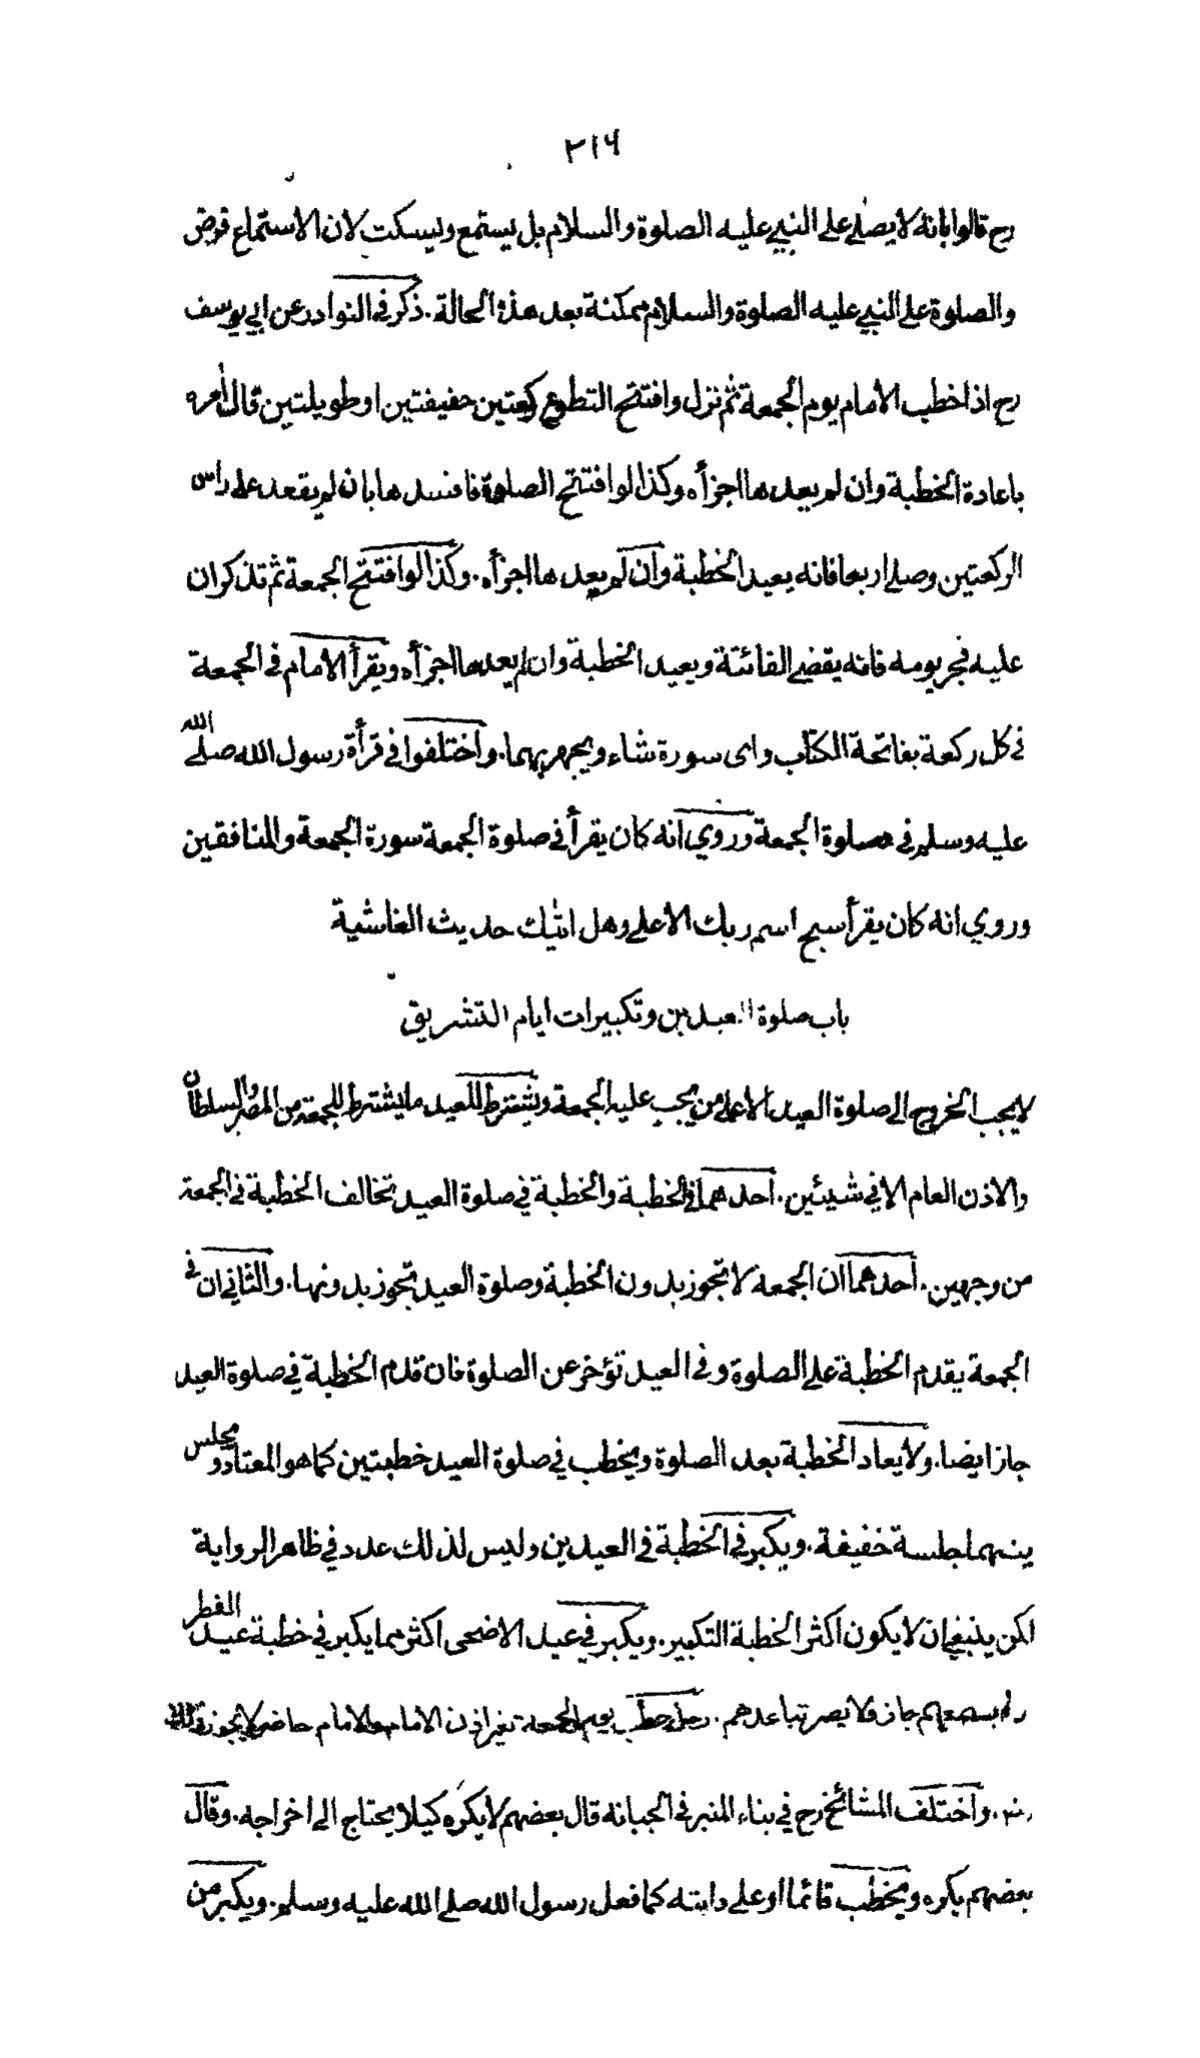 ٢١٦
رح قالوا بانه لا يصلي على النبي عليه الصلوة والسلام بل يستمع ويسكت لان الاستماع فرض
والصلوة على النبي عليه الصلوة والسلام ممكنة بعد هذه الحالة. ذكر في النوادر عن ابي يوسف
رح اذا خطب الامام يوم الجمعة ثم نزل وافتتح التطوع ركعتين خفيفتين او طويلتين قال امره
باعادة الخطبة وان لم يعدها اجزأه وكذا لو افتتح الصلوة فافسدها بان لم يقعد على راس
الركعتين وصلى اربعا فانه يعيد الخطبة وان لم يعدها اجزأه. وكذا لو افتتح الجمعة ثم تذكر ان
عليه فجر يومه فانه يقضي الفائتة ويعيد الخطبة وان لم يعدها اجزأه ويقرأ الامام في الجمعة
في كل ركعة بفاتحة الكتاب واى سورة شاء ويجهر بهما. واختلفوا في قرأة رسول الله صلى الله
عليه وسلم في صلوة الجمعة وروي انه كان يقرأ في صلوة الجمعة سورة الجمعة والمنافقين
وروي انه كان يقرأ سبح اسم ربك الاعلى وهل اتيك حديث الغاشية
باب صلوة العيدين وتكبيرات ايام التشريق
لا يجب الخروج الى صلوة العيد الا على من يجب عليه الجمعة ويشترط للعيد ما يشترط للجمعة من المصر والسلطان
والاذن العام الا في شيئين. احدهما في الخطبة والخطبة في صلوة العيد تخالف الخطبة في الجمعة
من وجهين. احدهما ان الجمعة لا تجوز بدون الخطبة وصلوة العيد تجوز بدونها. والثاني ان في
الجمعة يقدم الخطبة على الصلوة وفي العيد تؤخر عن الصلوة فان قدم الخطبة في صلوة العيد
جاز ايضا. ولا يعاد الخطبة بعد الصلوة ويخطب في صلوة العيد خطبتين كما هو المعتاد ومجلس
بينهما جلسة خفيفة. ويكبر في الخطبة في العيدين وليس لذلك عدد في ظاهر الرواية
لكن ينبغي ان لا يكون اكثر الخطبة التكبير. ويكبر في عيد الاضحى اكثر مما يكبر في خطبة عيد الفطر
جاز فلا يضر تباعدهم. رجل خطب يوم الجمعة بغير اذن الامام والامام حاضر لا يجوز ذلك
منه. واختلف المشائخ رح في بناء المنبر في الجبانة قال بعضهم لا يكره كيلا يحتاج الى اخراجه. وقال
بعضهم يكره ويخطب قائما او على دابته كما فعل رسول الله صلى الله عليه وسلم. ويكبر من